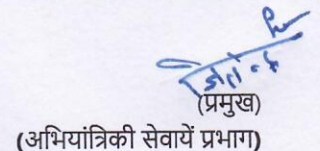 (प्रमुख)
(अभियांत्रिकी सेवायें प्रभाग)